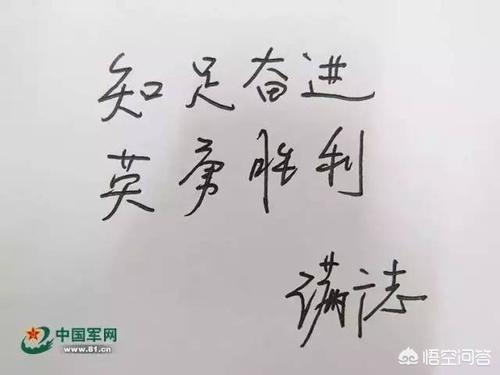 知足奋进
英勇胜利
满广志
中国军网
www.81.cn
悟空问答